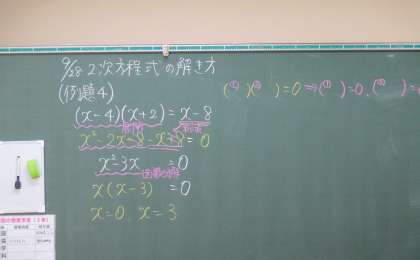 9/28 2次方程式の解き方
(例題4)
(x-4)(x+2)=x-8
展開
x²-2x-8-x+8=0
x²-3x=0
x(x-3)=0
x=0, x=3
(①)(②)=0⇒(①)=0, (②)=